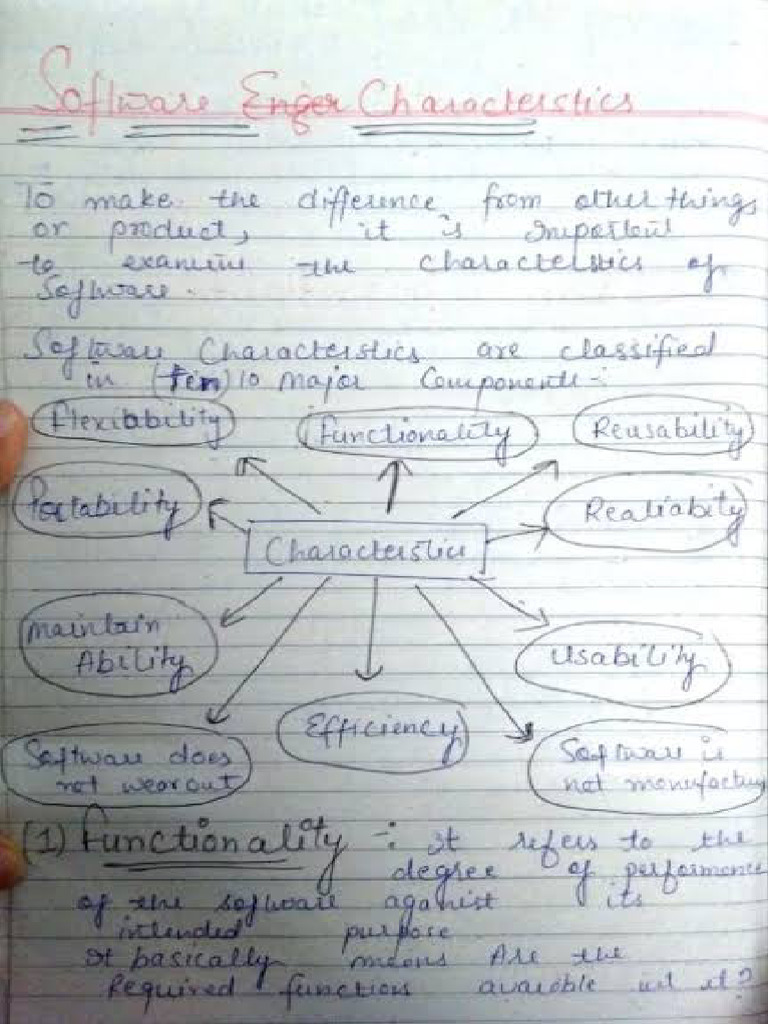 Software Enger Characterstics
To make the difference from other things
or product, it is important
to examine the characterstics of
Software.
Software Characterstics are classified
in (ten) 10 major Components:-
Flexiability
Functionality
Reusability
Portability
Realiabity
Characterstics
maintain
Ability
Usability
Efficiency
Software does
not wearout
Software is
not monufactury
(1) Functionality -: it refers to the
degree of performance
of the software aganist its
intended purpose
It basically means Are the
Required functions avaioble in it?